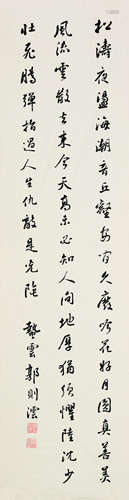 松濤夜盪海潮音丘壑安有久廢吟花好月圓真善美
風流雲散去來今天高未必知人間地厚猶須懼陸沈少
壯飛騰彈指過人生仇敵是光陰
蟄雲郭則澐